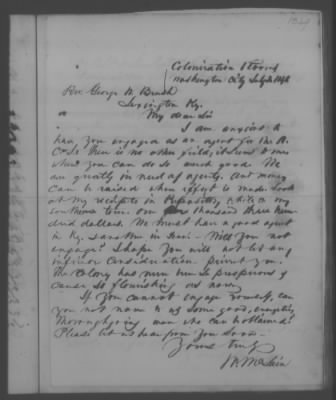 Colonization Rooms
Washington City July 1848
Rev. George W. Brush
Lexington Ky.
My dear Sir
I am anxious to
have you engaged as an agent for the A.
C. S. There is no other field, it seems to me
where you can do so much good. We
are greatly in need of agents. And money
can be raised when effort is made. Look
at my receipts in Repository, while on my
southern tour one thousand three hun-
dred dollars. We must have a good agent
in Ky. Will you not
engage? I hope you will not let any
inferior consideration prevent you.
The Colony has never been so prosperous &
cause so flourishing as now.
If you cannot engage yourself, can
you not name to us some good, energetic,
thoroughgoing man who can be obtained?
Please let us hear from you soon.
Yours truly
W. McLain